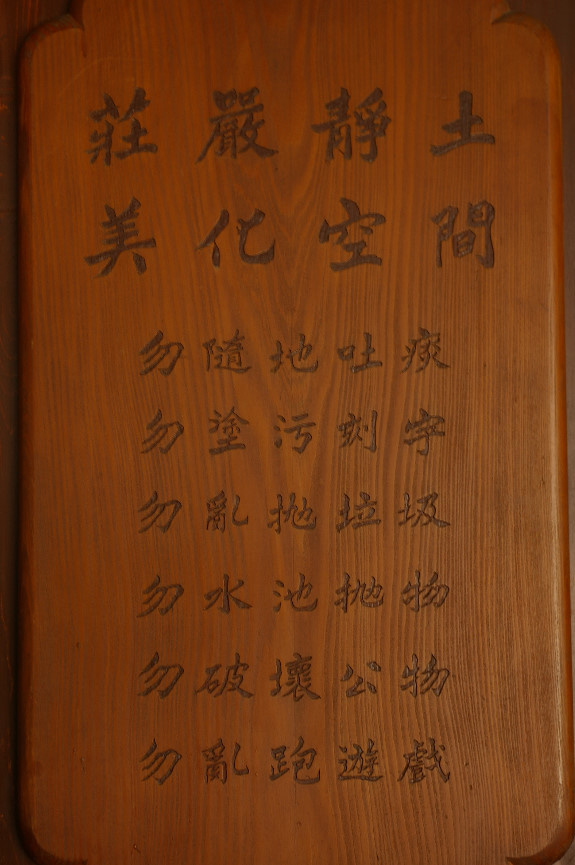 莊嚴靜土
美化空間
勿隨地吐痰
勿塗污刻字
勿亂拋垃圾
勿水池拋物
勿破壞公物
勿亂跑遊戲